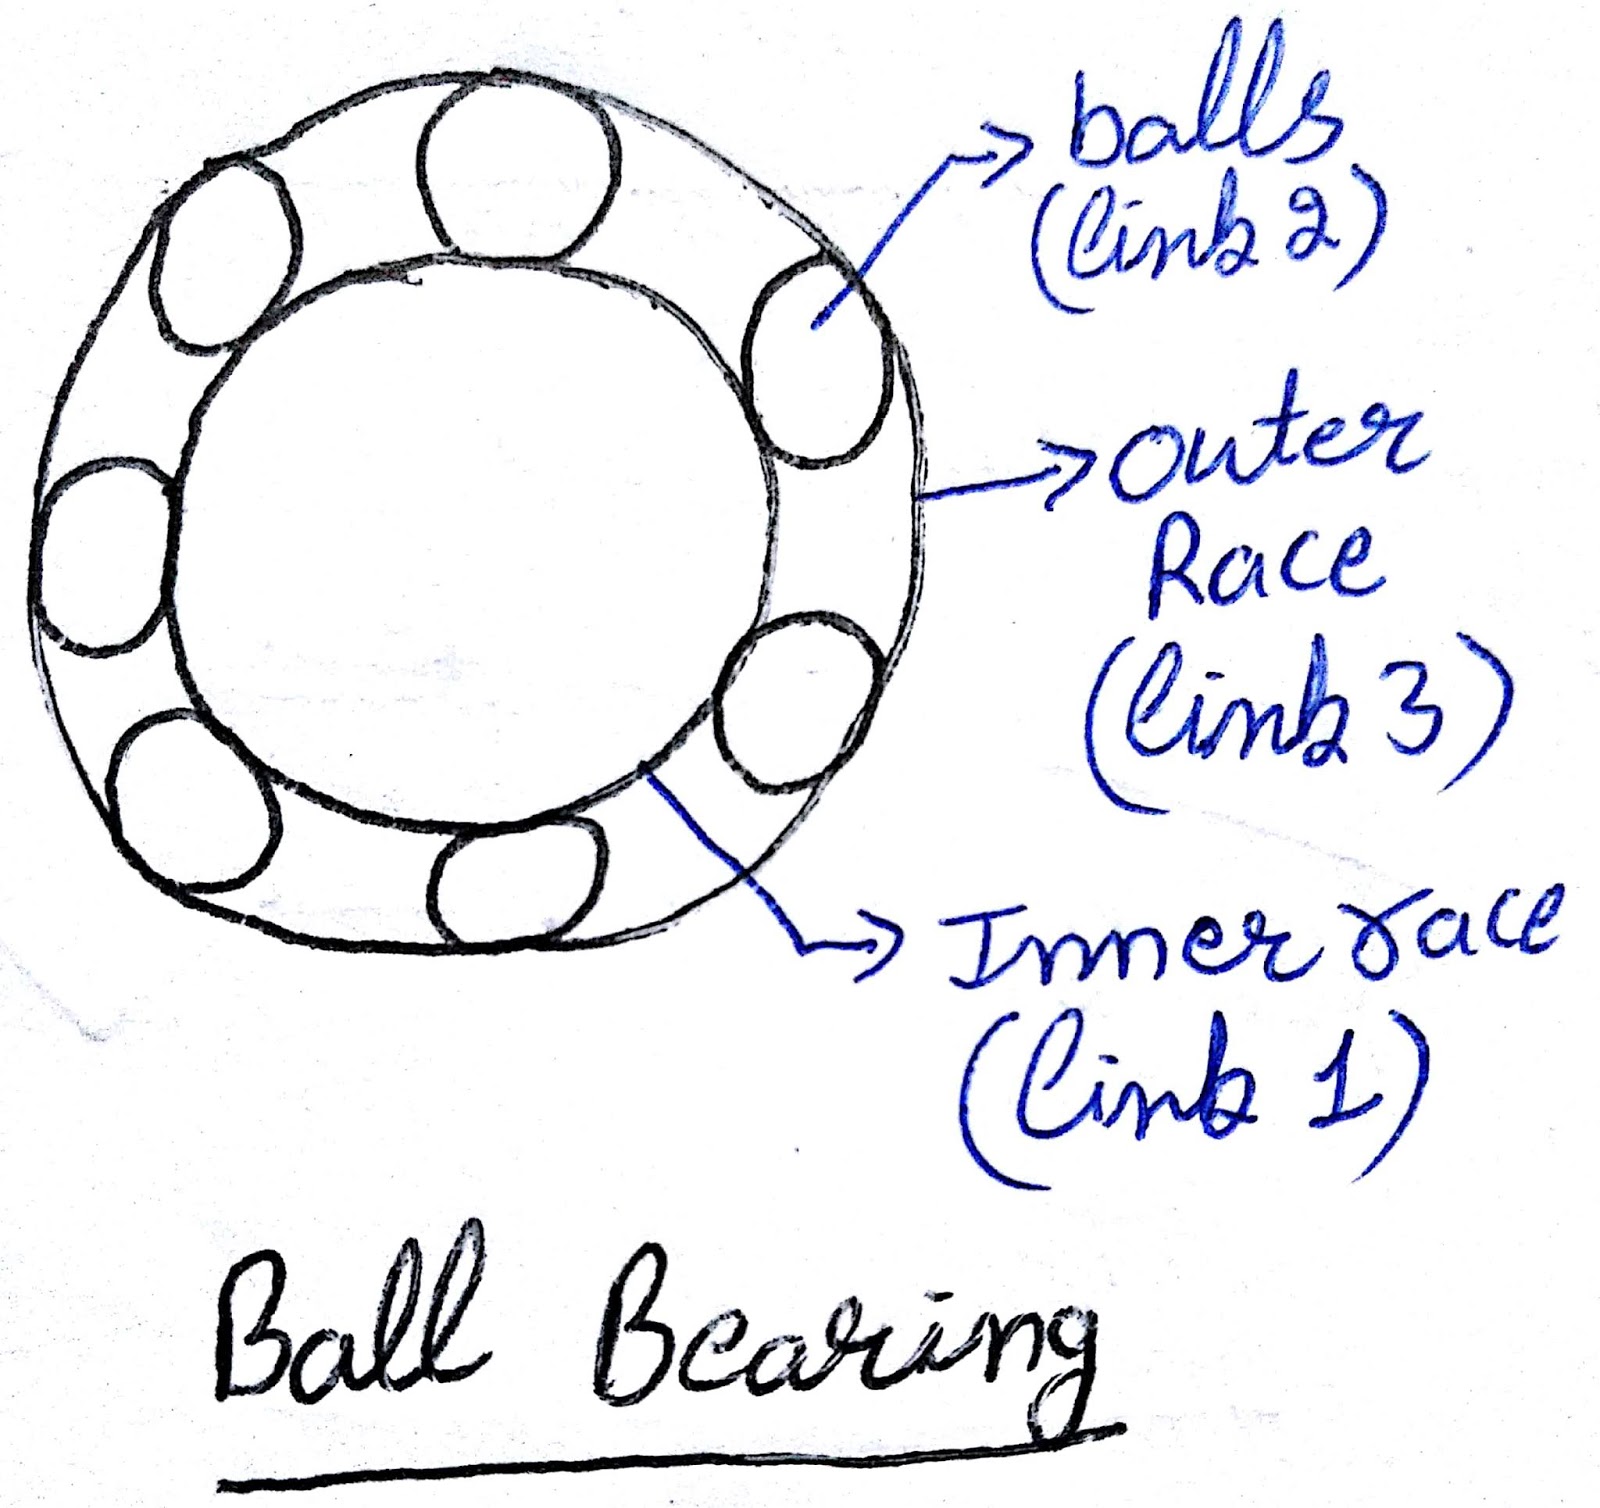 balls
(link 2)
Outer
Race
(link 3)
Inner race
(link 1)
Ball Bearing